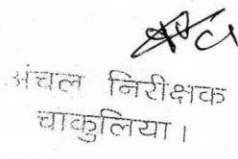 अंचल निरीक्षक
चाकुलिया।